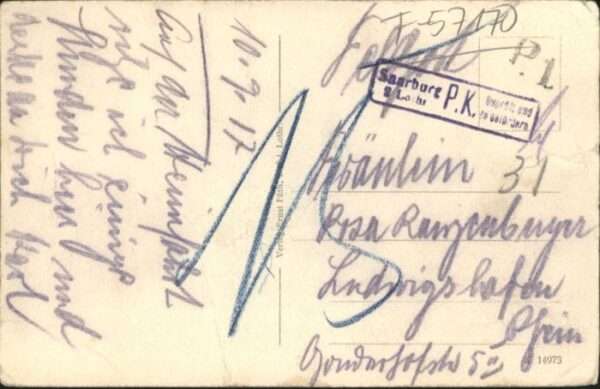 10. 9. 17
Auf der Heimfahrt
sitze ich einige
Stunden hier und
denke an Dich Karl
F-57170
P.1
Saarburg
i/Lothr
P.K.
Geprüft und
zu befördern
15
31
Fräulein
Rosa Ranzenberger
Ludwigshafen
Rhein
5a
14973